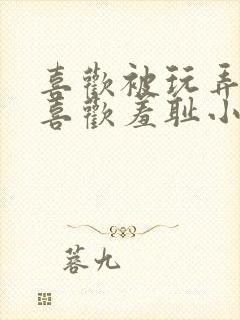 喜歡被玩弄
喜歡羞耻小
蓉九